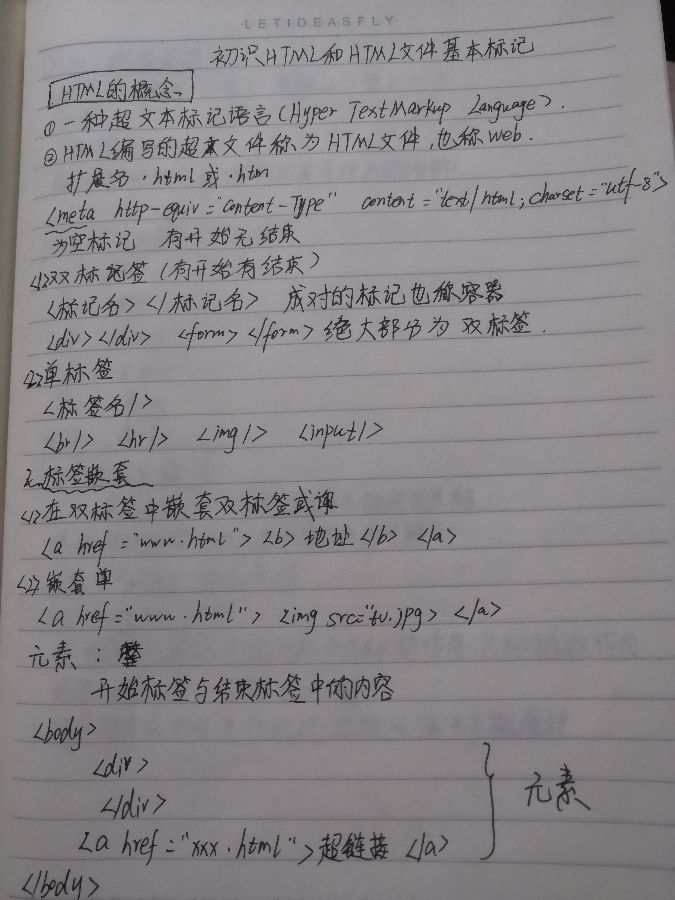 ·LETIDEASFLY·
初识HTML和HTML文件基本标记
HTML的概念、
①一种超文本标记语言(Hyper TextMarkup Language).
②HTML编写的超文件称为HTML文件,也称web.
扩展名.html或.htm
<meta http-equiv="content-Type" content="text/html;charset="utf-8">
为空标记 有开始无结束
<1>双标签(有开始有结束)
<标记名></标记名> 成对的标记也称容器
<div></div> <form></form>绝大部分为双标签.
<2>单标签
<标签名/>
<br/> <hr/> <img/> <input/>
2.标签嵌套
<1>在双标签中嵌套双标签或单
<a href="www.html"><b>地址</b></a>
<2>嵌套单
<a href="www.html"> <img src="tu.jpg> </a>
元素:
开始标签与结束标签中的内容
<body>
<div>
</div>
<a href="xxx.html">超链接</a>
元素
</body>